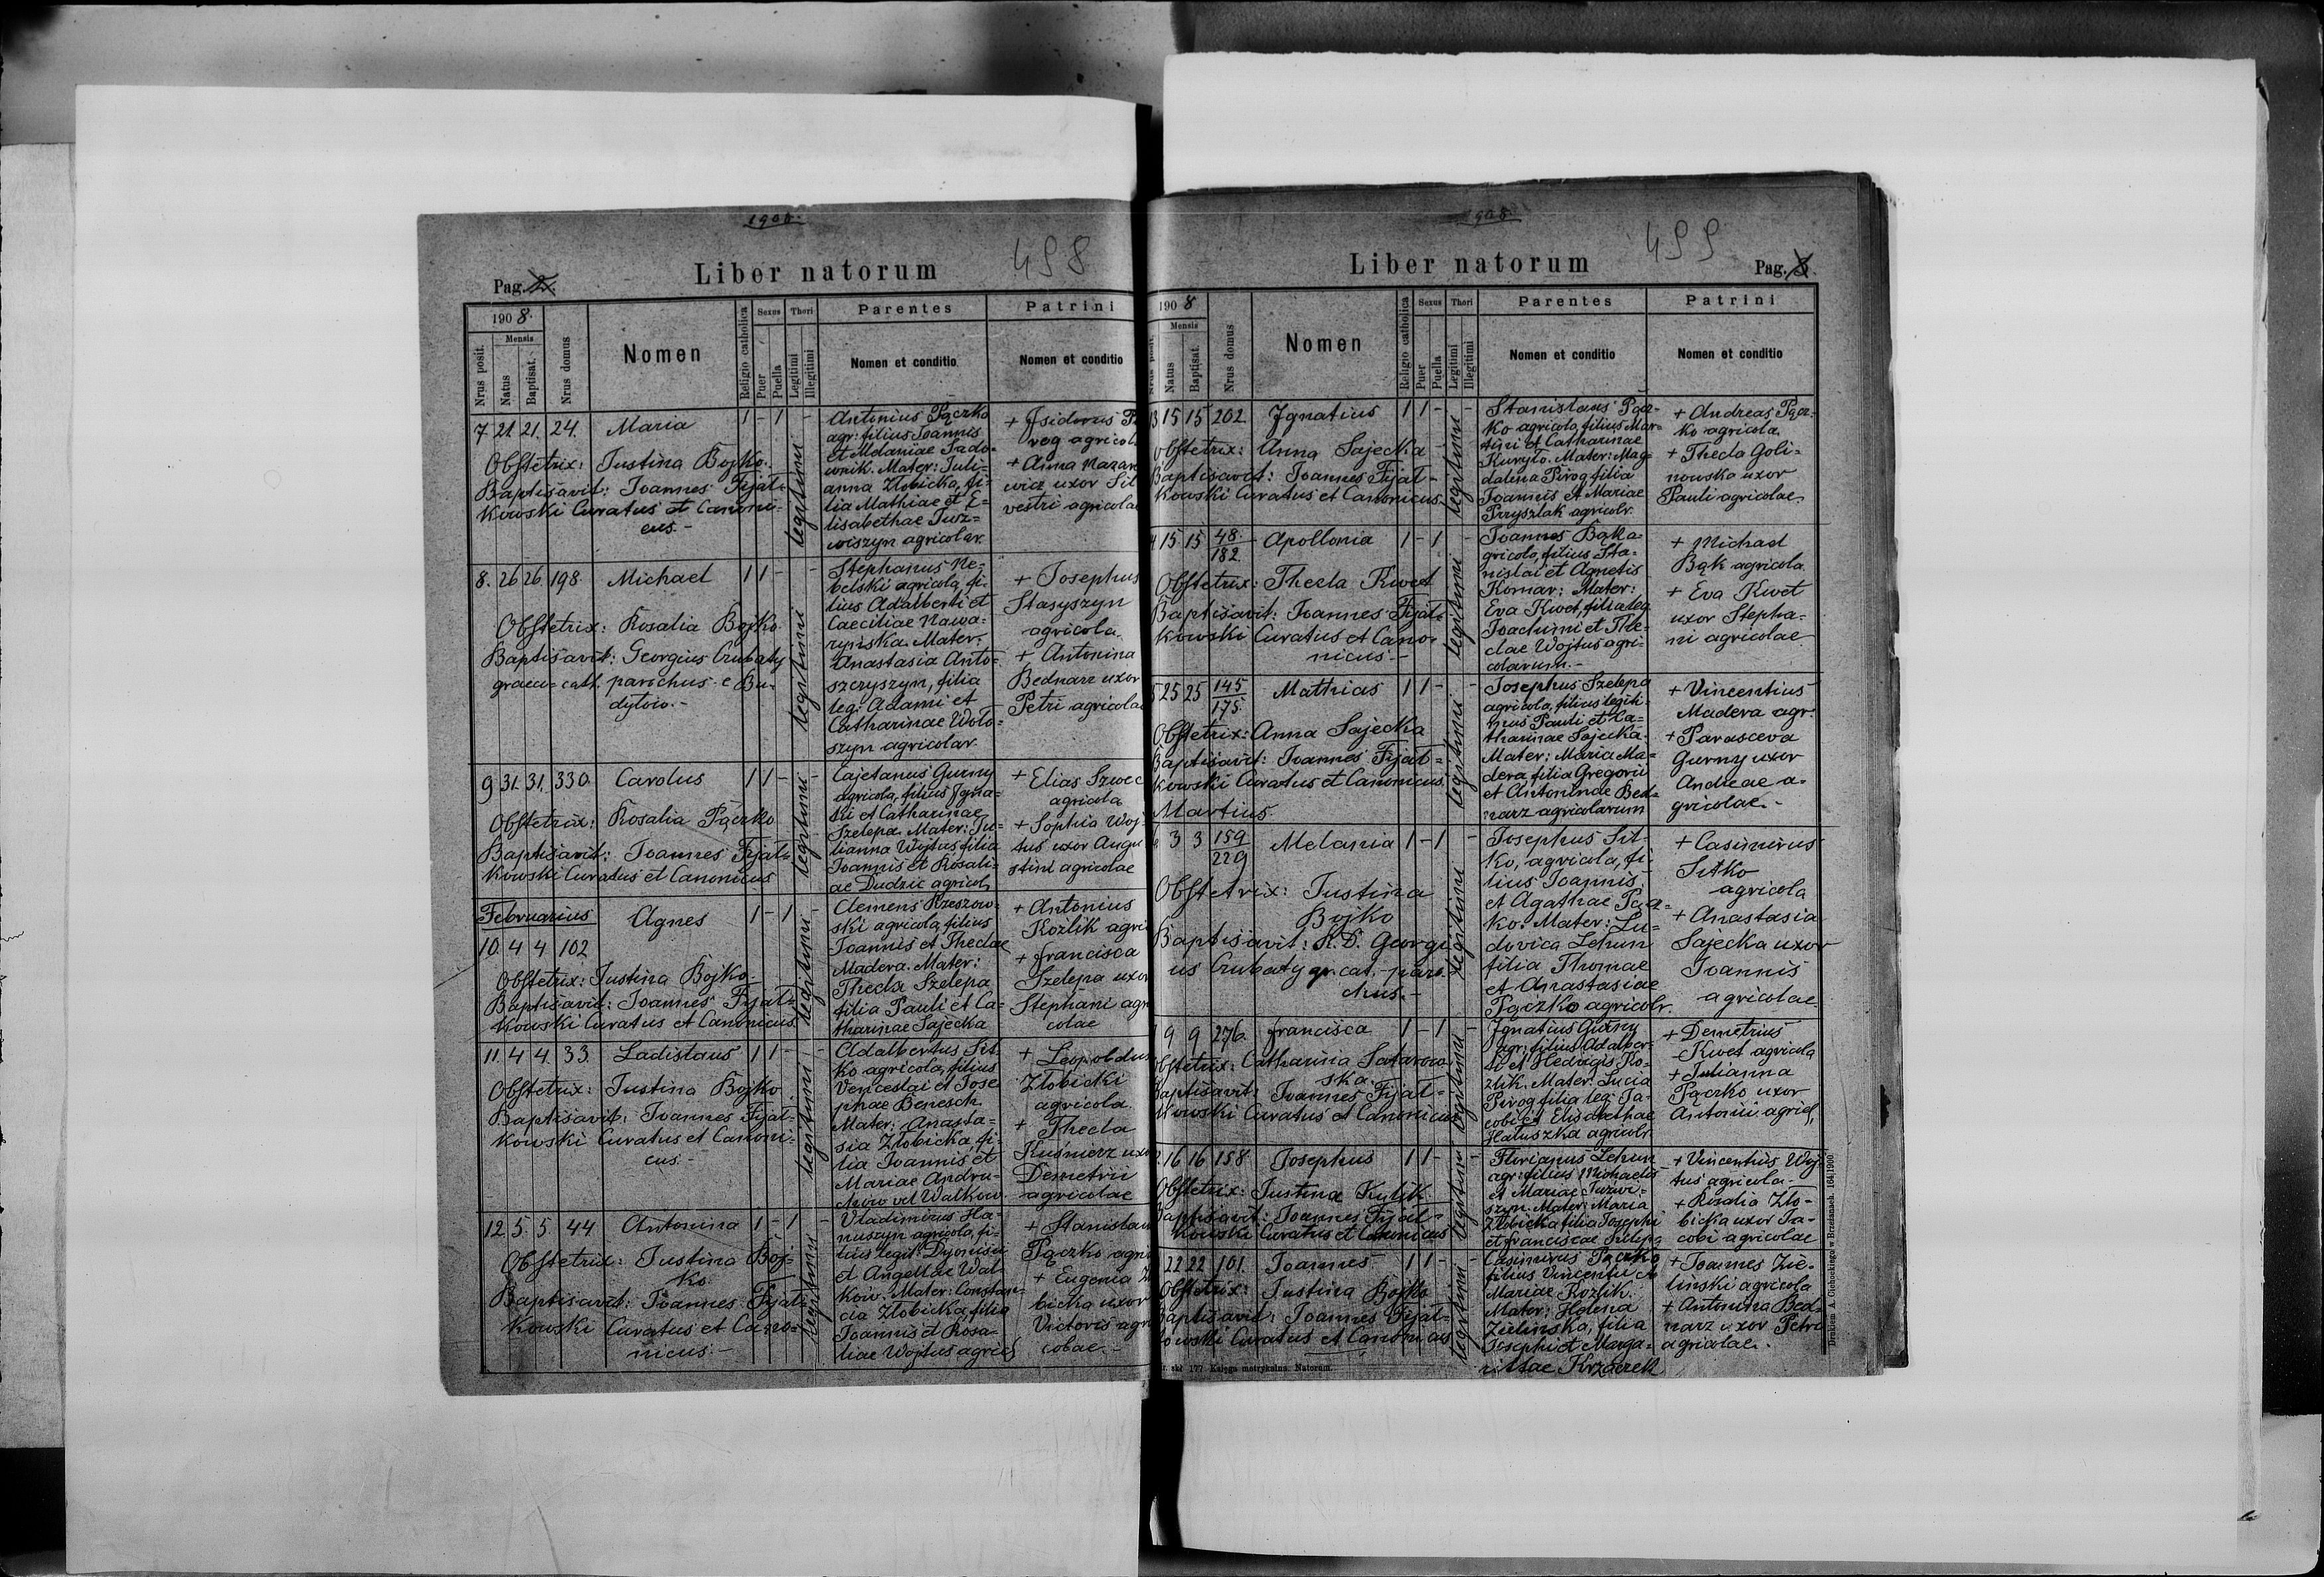 1908.
498
Pag. 2.
Liber natorum
1908.
Nrus posit.
Mensis
Natus
Baptisat.
Nrus domus
Nomen
Religio catholica
Sexus
Puer
Puella
Thori
Legitimi
Illegitimi
Parentes
Nomen et conditio
Patrini
Nomen et conditio
7 21. 21. 24. Maria 1 - 1 -
Obstetrix: Justina Bojko.
Baptisavit: Joannes Fijał-
kowski Curatus et Canoni-
cus.-
legitimi
Antonius Pączko
agr: filius Joannis
et Melaniae Sado-
wnik. Mater: Juli-
anna Złobicka, fi-
lia Mathiae et E-
lisabethae Turz-
wiszyn agricolar.
+ Isidorus
rog agricol
+ Anna Nazar
wicz uxor Sil
vestri agricolae
8. 26 26. 198. Michael 1 1 - -
Obstetrix: Rosalia Bojko.
Baptisavit: Georgius Czubaty
graeci-cath. parochus e Bu-
dyłow.-
legitimi
Stephanus Ne-
belski agricola, fi-
lius Adalberti et
Caeciliae Nawa-
rynska. Mater:
Anastasia Anto-
szczyszyn, filia
leg: Adami et
Catharinae Woło-
szyn agricolar
+ Josephus
Stasyszyn
agricola.
+ Antonina
Bednarz uxor
Petri agricolae
9 31. 31. 330. Carolus 1 1 - -
Obstetrix: Rosalia Pączko
Baptisavit: Joannes Fijał-
kowski Curatus et Canonicus
legitimi
Cajetanus Gurny
agricola, filius Igna-
tii et Catharinae
Szelepa. Mater: Ju-
lianna Wojtus filia
Joannis et Rosali-
ae Dudzic agricol
+ Elias Szwec
agricola
+ Sophia Woj
tus uxor Augu
stini agricolae
Februarius
10. 4 4 102 Agnes 1 - 1 -
Obstetrix: Justina Bojko.
Baptisavit: Joannes Fijał-
kowski Curatus et Canonicus.
legitimi
Clemens Rzeszow-
ski agricola, filius
Joannis et Theclae
Madera. Mater:
Thecla Szelepa
filia Pauli et Ca-
tharinae Sajecka
+ Antonius
Kozlik agri
+ Francisca
Szelepa uxor
Stephani agri
colae
11. 4 4. 33. Ladislaus 1 1 - -
Obstetrix: Justina Bojko
Baptisavit: Joannes Fijał-
kowski Curatus et Canoni-
cus.-
legitimi
Adalbertus Sit-
ko agricola, filius
Venceslai et Jose
phae Benesch
Mater: Anasta-
sia Złobicka, fi-
lia Joannis et
Mariae Andru-
chow vel Walkow
+ Leopoldus
Złobicki
agricola.
+ Thecla
Kusnierz uxor
Demetrii
agricolae
12. 5. 5. 44 Antonina 1 - 1 -
Obstetrix: Justina Boj-
ko
Baptisavit: Joannes Fijał-
kowski Curatus et Cano-
nicus.-
legitimi
Vladimirus Ha-
nuszyn agricola, fi-
lius legit: Dyonisii
et Angellae Wal-
kow. Mater: Constan-
cia Złobicka, filia
Joannis et Rosa-
liae Wojtus agricol
+ Stanislaus
Pączko agri
+ Eugenia
bicka uxor
Victoris agri
colae.-
1908
499
Liber natorum
Pag. 3.
1908
Nrus posit.
Mensis
Natus
Baptisat.
Nrus domus
Nomen
Religio catholica
Sexus
Puer
Puella
Thori
Legitimi
Illegitimi
Parentes
Nomen et conditio
Patrini
Nomen et conditio
13 15 15 202. Ignatius 1 1 - -
Obstetrix: Anna Sajecka
Baptisavit: Joannes Fijał-
kowski Curatus et Canonicus.
legitimi
Stanislaus Pącz-
ko agricola, filius Mar-
tini et Catharinae
Kuryło. Mater: Mag-
dalena Pirog filia
Joannis et Mariae
Przyszlak agricolr.
+ Andreas Pącz-
ko agricola.
+ Thecla Goli-
nowska uxor
Pauli agricolae.
15 15 48. Apollonia 1 - 1 -
182
Obstetrix: Thecla Kwet
Baptisavit: Joannes Fijał-
kowski Curatus et Cano-
nicus.-
legitimi
Joannes Bąk a-
gricola, filius Sta-
nislai et Agnetis
Komar: Mater:
Eva Kwet, filia leg
Joachimi et The-
clae Wojtus agri-
colarum.-
+ Michael
Bąk agricola.
+ Eva Kwet
uxor Stepha-
ni agricolae
25 25 145 Mathias 1 1 - -
175.
Obstetrix: Anna Sajecka
Baptisavit: Joannes Fijał-
kowski Curatus et Canonicus.
legitimi
Josephus Szelepa
agricola, filius legiti-
mus Pauli et Ca-
tharinae Sajecka.
Mater: Maria Ma-
dera, filia Gregorii
et Antoninae Bed-
narz agricolarum
+ Vincentius
Madera agr.
+ Parasceva
Gurny uxor
Andreae a-
gricolae.-
Martius.
3 3 159 Melania 1 - 1 -
229
Obstetrix: Justina
Bojko
Baptisavit: R. D. Georgi-
us Czubaty gr. cat.-paro-
chus.-
legitimi
Josephus Sit-
ko, agricola, fi-
lius Joannis
et Agathae Pącz-
ko. Mater: Lu-
dovica Lehun
filia Thomae
et Anastasiae
Pączko agricolr.
+ Casimirus
Sitko
agricola
+ Anastasia
Sajecka uxor
Joannis
agricolae
9 9 276. Francisca 1 - 1 -
Obstetrix: Catharina Satarow-
ska.
Baptisavit: Joannes Fijał-
kowski Curatus et Canonicus
legitimi
Ignatius Gurny
agr: filius Adalber-
ti et Hedvigis Ko-
zlik. Mater: Lucia
Pirog filia leg: Ja-
cobi et Elisabethae
Hałuszka agricolr.
+ Demetrius
Kwet agricola
+ Julianna
Pączko uxor
Antonii agricol,
16 16 158 Josephus 1 1 - -
Obstetrix: Justina Kulik.
Baptisavit: Joannes Fijał-
kowski Curatus et Canonicus
legitimi
Florianus Lehun
agr: filius Michaelis
et Mariae Turzwi-
szyn. Mater: Maria
Złobicka filia Josephi
et Franciscae Szelepa
+ Vincentius Woj-
tus agricola.-
+ Rosalia Zło-
bicka uxor Ja-
cobi agricolae
22 22 101. Joannes 1 1 - -
Obstetrix: Justina Bojko
Baptisavit: Joannes Fijał-
kowski Curatus et Canonicus
legitimi
Casimirus Pączko
filius Vincentii et
Mariae Kozlik.
Mater: Helena
Zielinska, filia
Josephi et Marga-
rithae Krzaczek
+ Joannes Zie-
linski agricola
+ Antonina Bed-
narz uxor Petri
agricolae.
177 Księga metrykalna. Natorum.
Drukiem A. Cichockiego w Brzeżanach. 164|1900